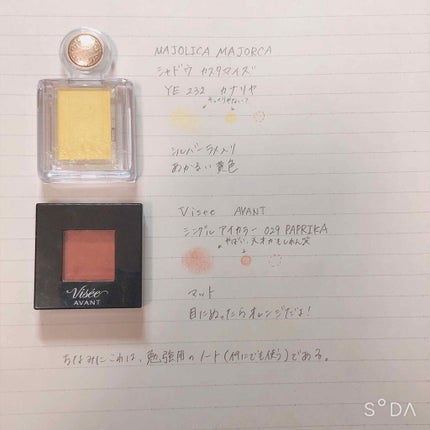 MAJOLICA MAJORCA
シャドウ カスタマイズ
YE 232 カナリヤ
シルバーラメ入り
あかるい黄色
Visée AVANT
シングルアイカラー 029 PAPRIKA
やばい、天才かもしれん笑
マット
目にぬったらオレンジだよ!
Visée
AVANT
ちなみにこれは、勉強用のノート(何にでも使う)である。
SODA